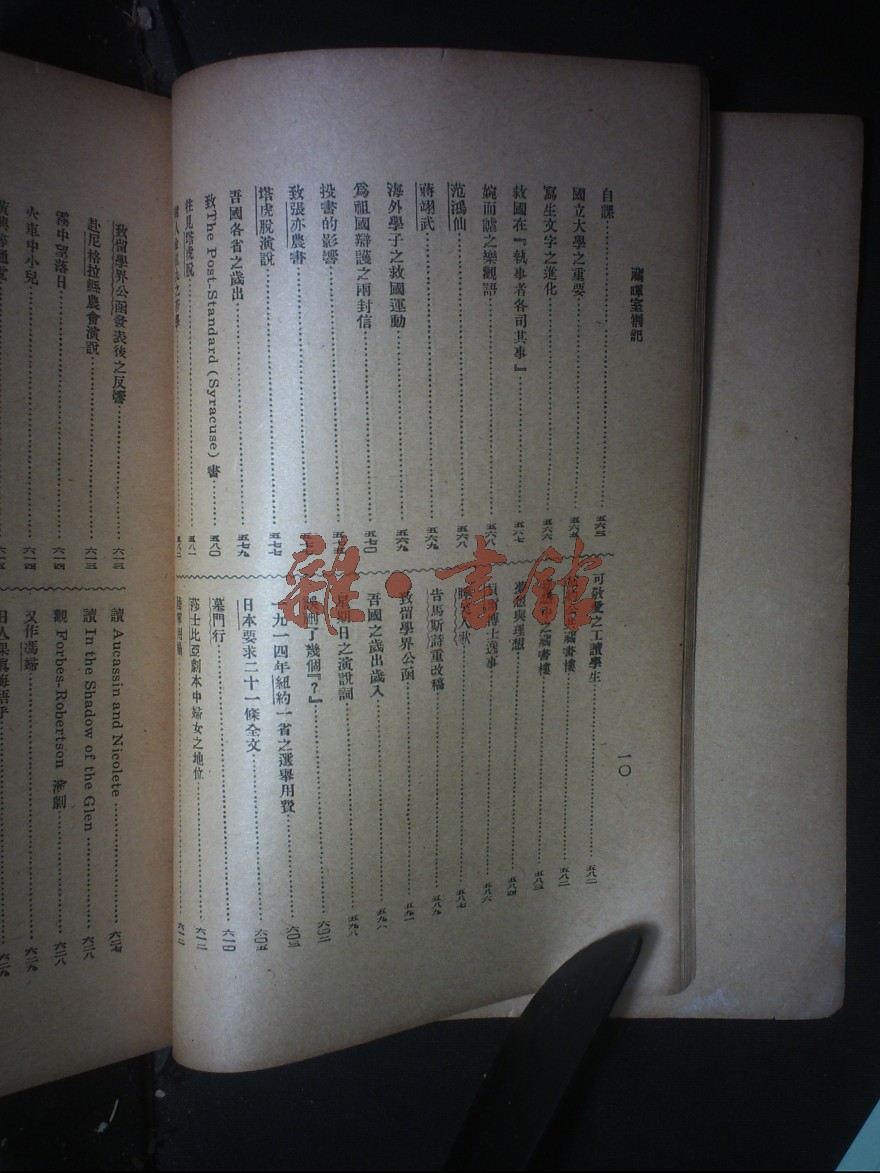 藏暉室劄記
一〇
自課……五六三
國立大學之重要……五六五
寫生文字之進化……五六六
救國在『執事者各司其事』……五六七
婉而謔之樂觀語……五六八
范鴻仙……五六八
蔣翊武……五六九
海外學子之救國運動……五六九
爲祖國辯護之兩封信……五七〇
投書的影響
致張亦農書
塔虎脫演說……五七七
吾國各省之歲出……五七九
致The Post-Standard (Syracuse) 書……五八〇
往見塔虎脫……五八一
可敬愛之工讀學生……五八二
藏書樓……五八二
之藏書樓……五八三
夢想與理想……五八四
博士逸事……五八六
五八七
告馬斯詩重改稿……五八九
致留學界公函……五九一
吾國之歲出歲入……五九八
星期日之演說詞……五九八
誤刪了幾個『?』……六〇二
一九一四年紐約一省之選舉用費……六〇三
日本要求二十一條全文……六〇五
墓門行……六一〇
莎士比亞劇本中婦女之地位……六一二
六一二
致留學界公函發表後之反響……六一三
赴尼格拉縣農會演說……六一三
霧中望落日……六一四
火車中小兒……六一四
讀 Aucassin and Nicolete……六二七
讀 In the Shadow of the Glen……六二八
觀 Forbes-Robertson 演劇……六二八
又作馮婦……六二九
雜·書館